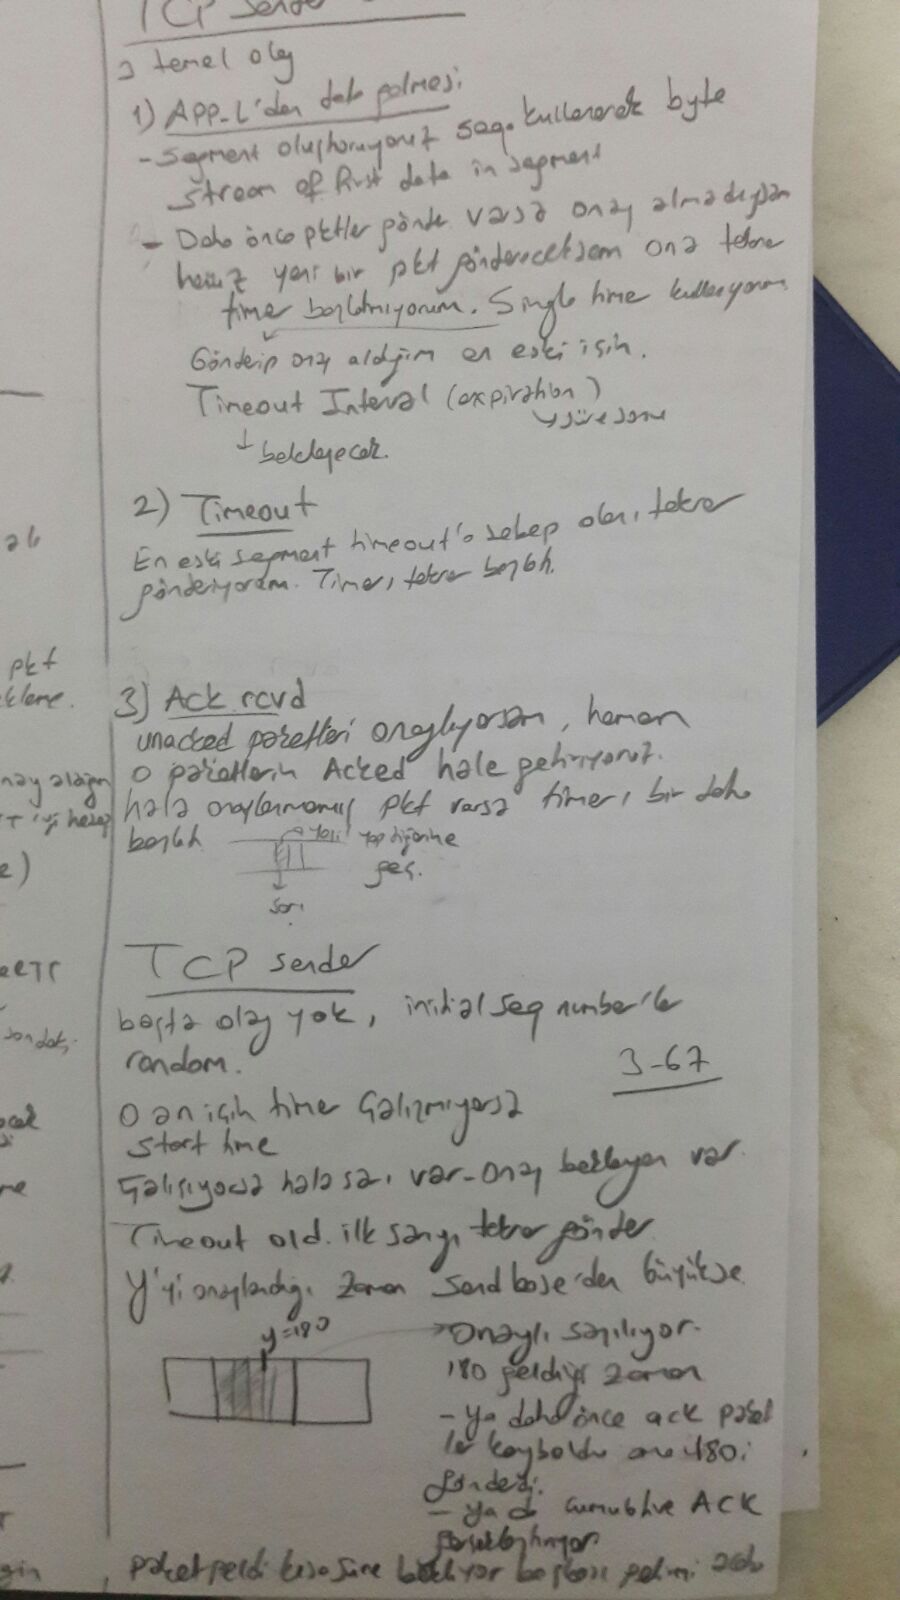 TCP sender
3 temel olay
1) App-L'den data gelmesi
- Segment oluşturuyoruz seq. kullanarak byte
stream of first data in segment
- Daha önce pktler gönder varsa onay almadıysam
henüz yeni bir pkt gönderceksem ona tekrar
timer başlatmıyorum. Single time kullanıyorum
Gönderip onay aldığım en eski için.
Timeout Interval (expiration)
süre sonu
bekleyecek.
2) Timeout
En eski segment timeout'a sebep olanı tekrar
gönderiyorum. Timerı tekrar başlat.
3) Ack rcvd
unacked paketleri onaylıyorsam, hemen
o paketlerin Acked hale getiriyoruz.
hala onaylanmamış pkt varsa timerı bir daha
başlat.
yeşil yap diğerine
geç.
sarı
TCP sender
başta olay yok, initial seq number'le
random.
3-67
O an için time çalışmıyorsa
start time
Çalışıyorsa hala sarı var-onay bekleyen var.
Timeout old. ilk sarıyı tekrar gönder
y'yi onayladığı zaman Sendbase'den büyükse
y=180
Onaylı sayılıyor.
180 geldiği zaman
- Ya daha önce ack paket
ler kayboldu ama 180i
gönderdi.
- ya da cumulative ACK
gerçekleştiriyor
paket geldi kısa süre bekliyor başkası gelmi
pkt
ekleme.